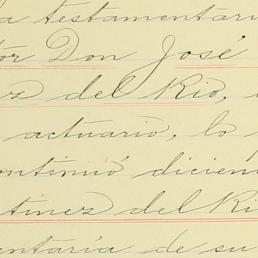 a testamentari
or Don José
ez del Rio,
actuario, lo
ontinuó dicien
tinez del Ri
entaría de su